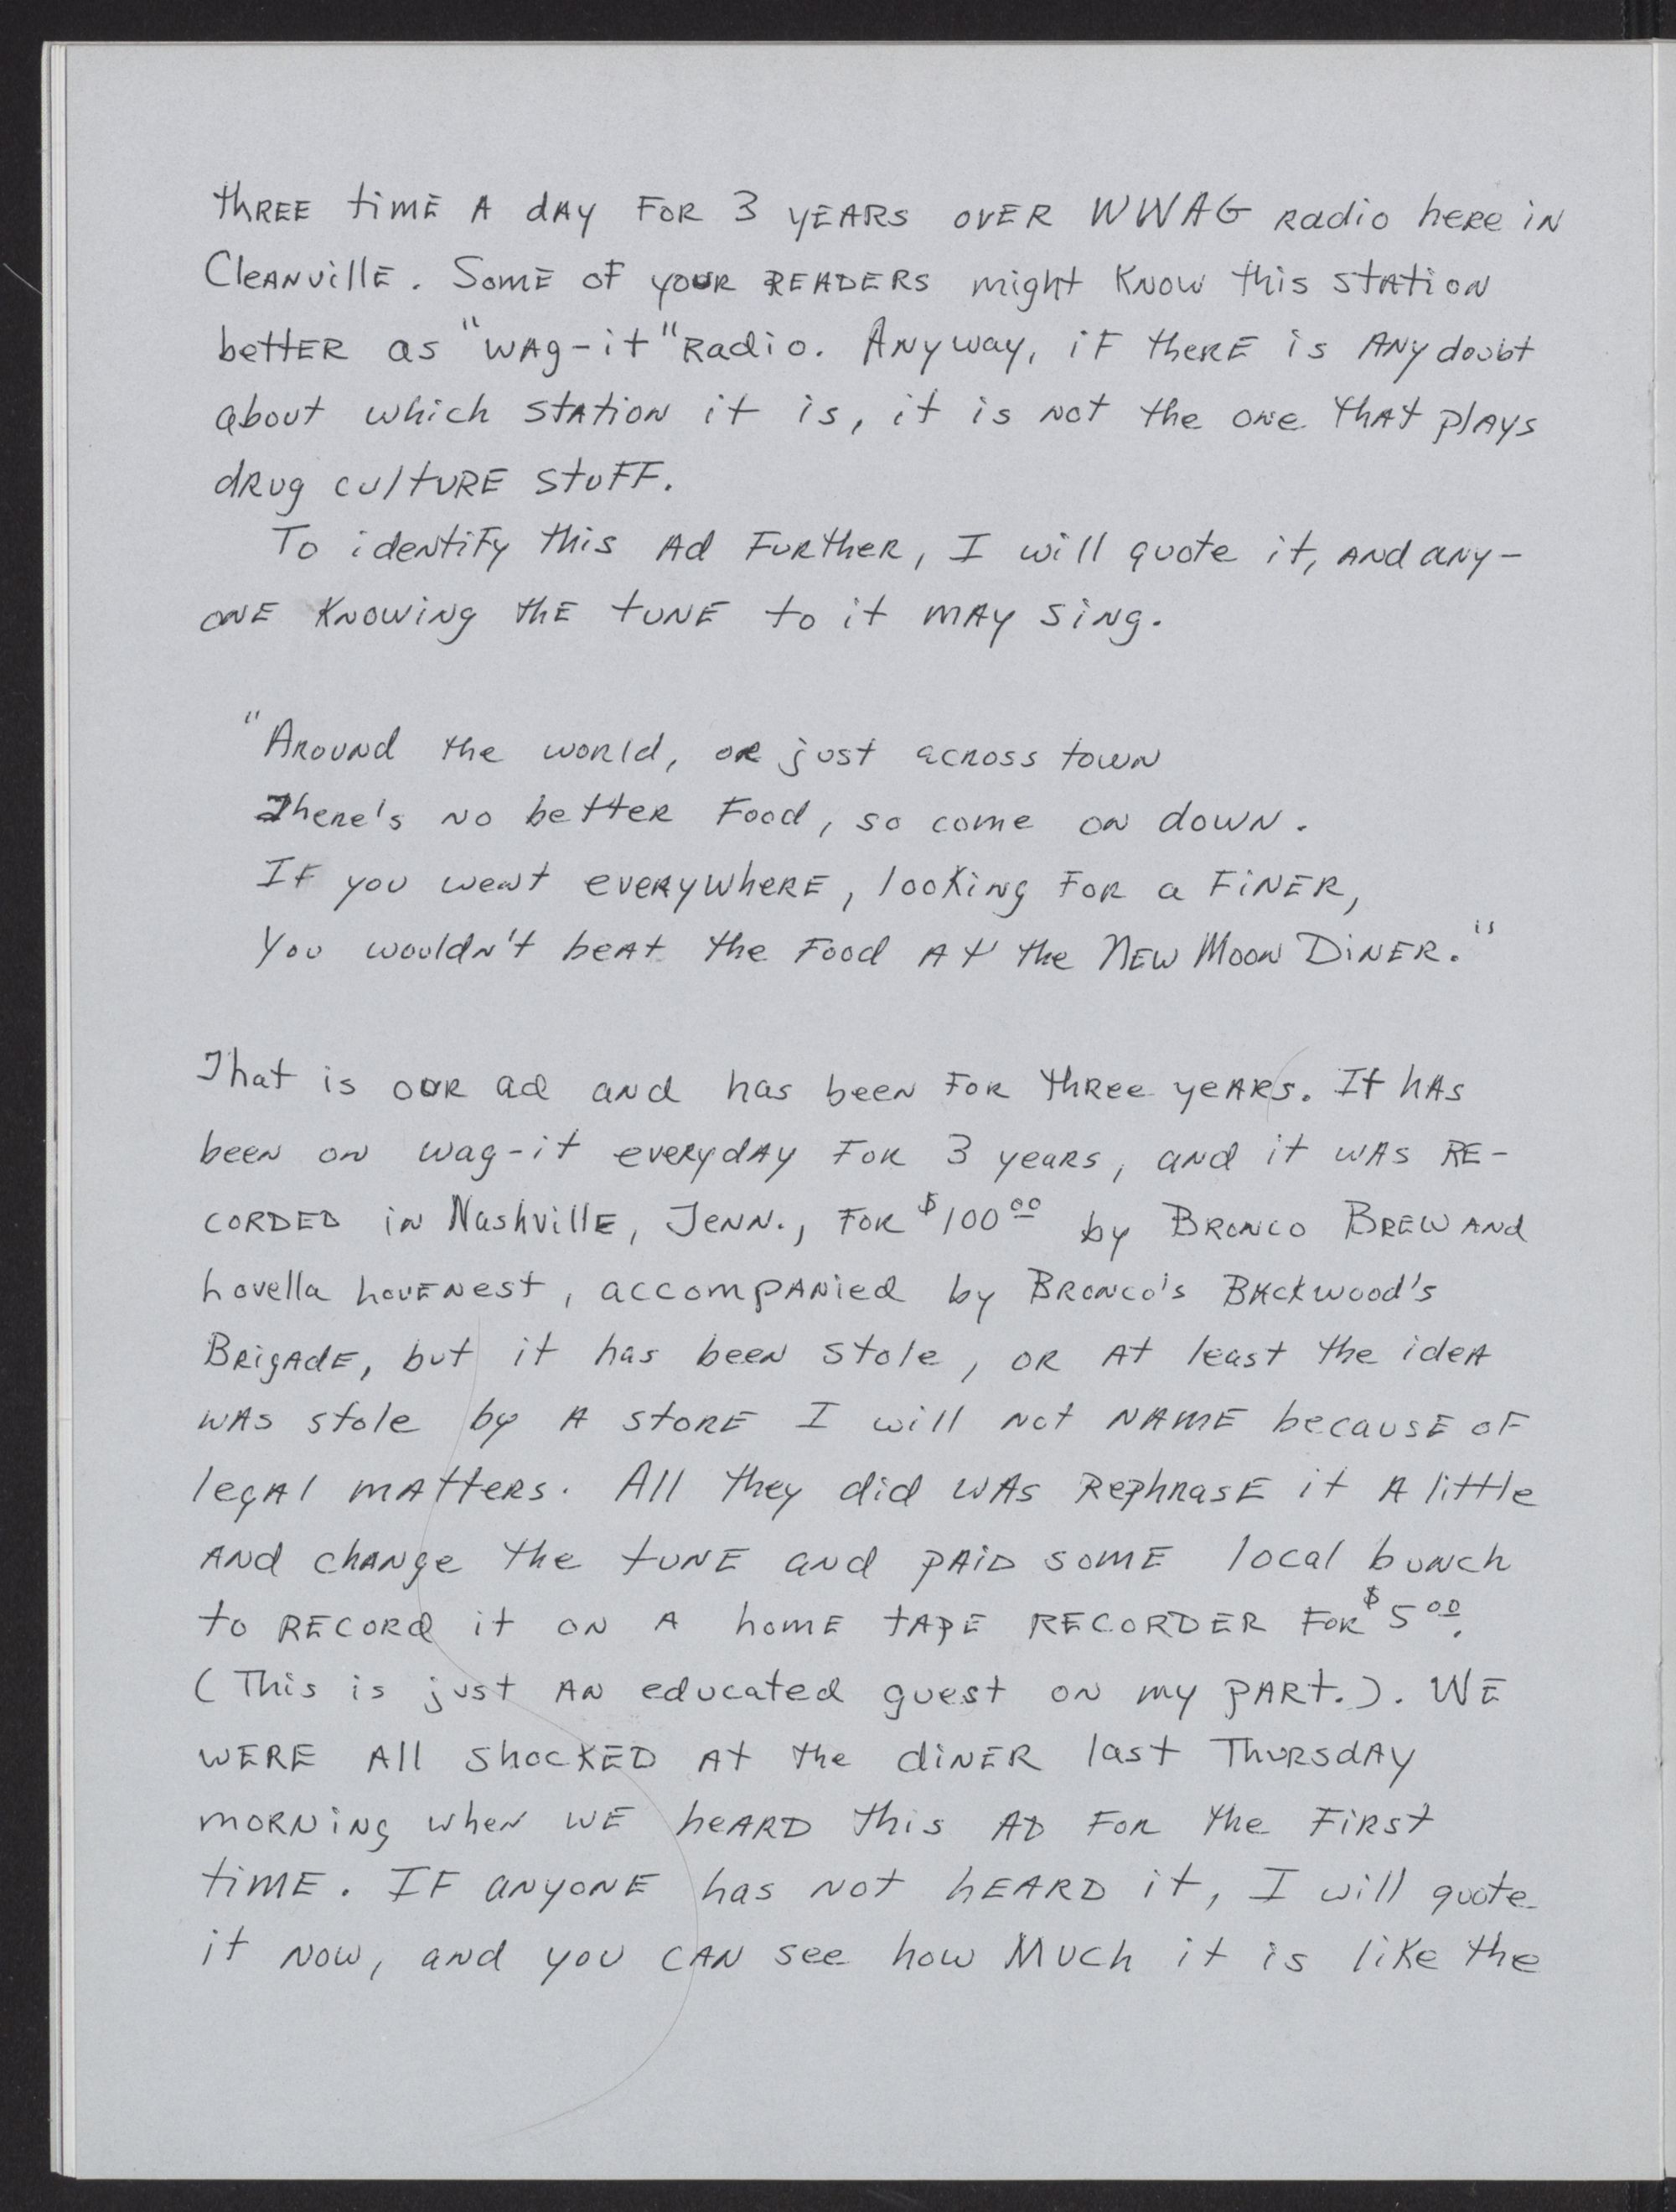 three time a day for 3 years over WWAG radio here in
Cleanville. Some of your readers might know this station
better as "wag-it" Radio. Anyway, if there is any doubt
about which station it is, it is not the one that plays
drug culture stuff.
To identify this ad further, I will quote it, and any-
one knowing the tune to it may sing.
"Around the world, or just across town
There's no better food, so come on down.
If you went everywhere, looking for a finer,
You wouldn't beat the food at the New Moon Diner."
That is our ad and has been for three years. It has
been on wag-it everyday for 3 years, and it was re-
corded in Nashville, Tenn., for $100.00 by Bronco Brew and
Lovella Lovenest, accompanied by Bronco's Backwood's
Brigade, but it has been stole, or at least the idea
was stole by a store I will not name because of
legal matters. All they did was rephrase it a little
and change the tune and paid some local bunch
to record it on a home tape recorder for $5.00.
(This is just an educated guest on my part.). We
were all shocked at the diner last Thursday
morning when we heard this ad for the first
time. If anyone has not heard it, I will quote
it now, and you can see how much it is like the